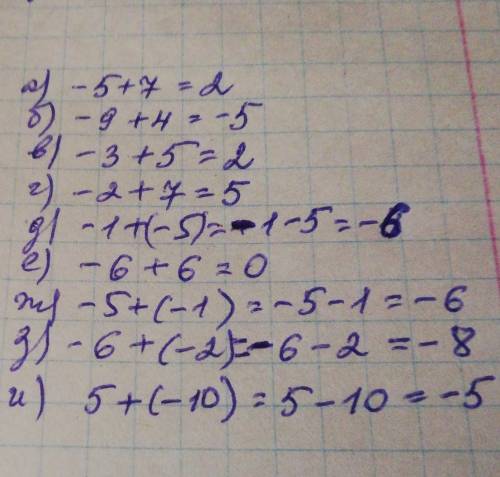 а) -5+7=2
б) -9+4=-5
в) -3+5=2
г) -2+7=5
д) -1+(-5)=-1-5=-6
е) -6+6=0
ж) -5+(-1)=-5-1=-6
з) -6+(-2)=-6-2=-8
и) 5+(-10)=5-10=-5